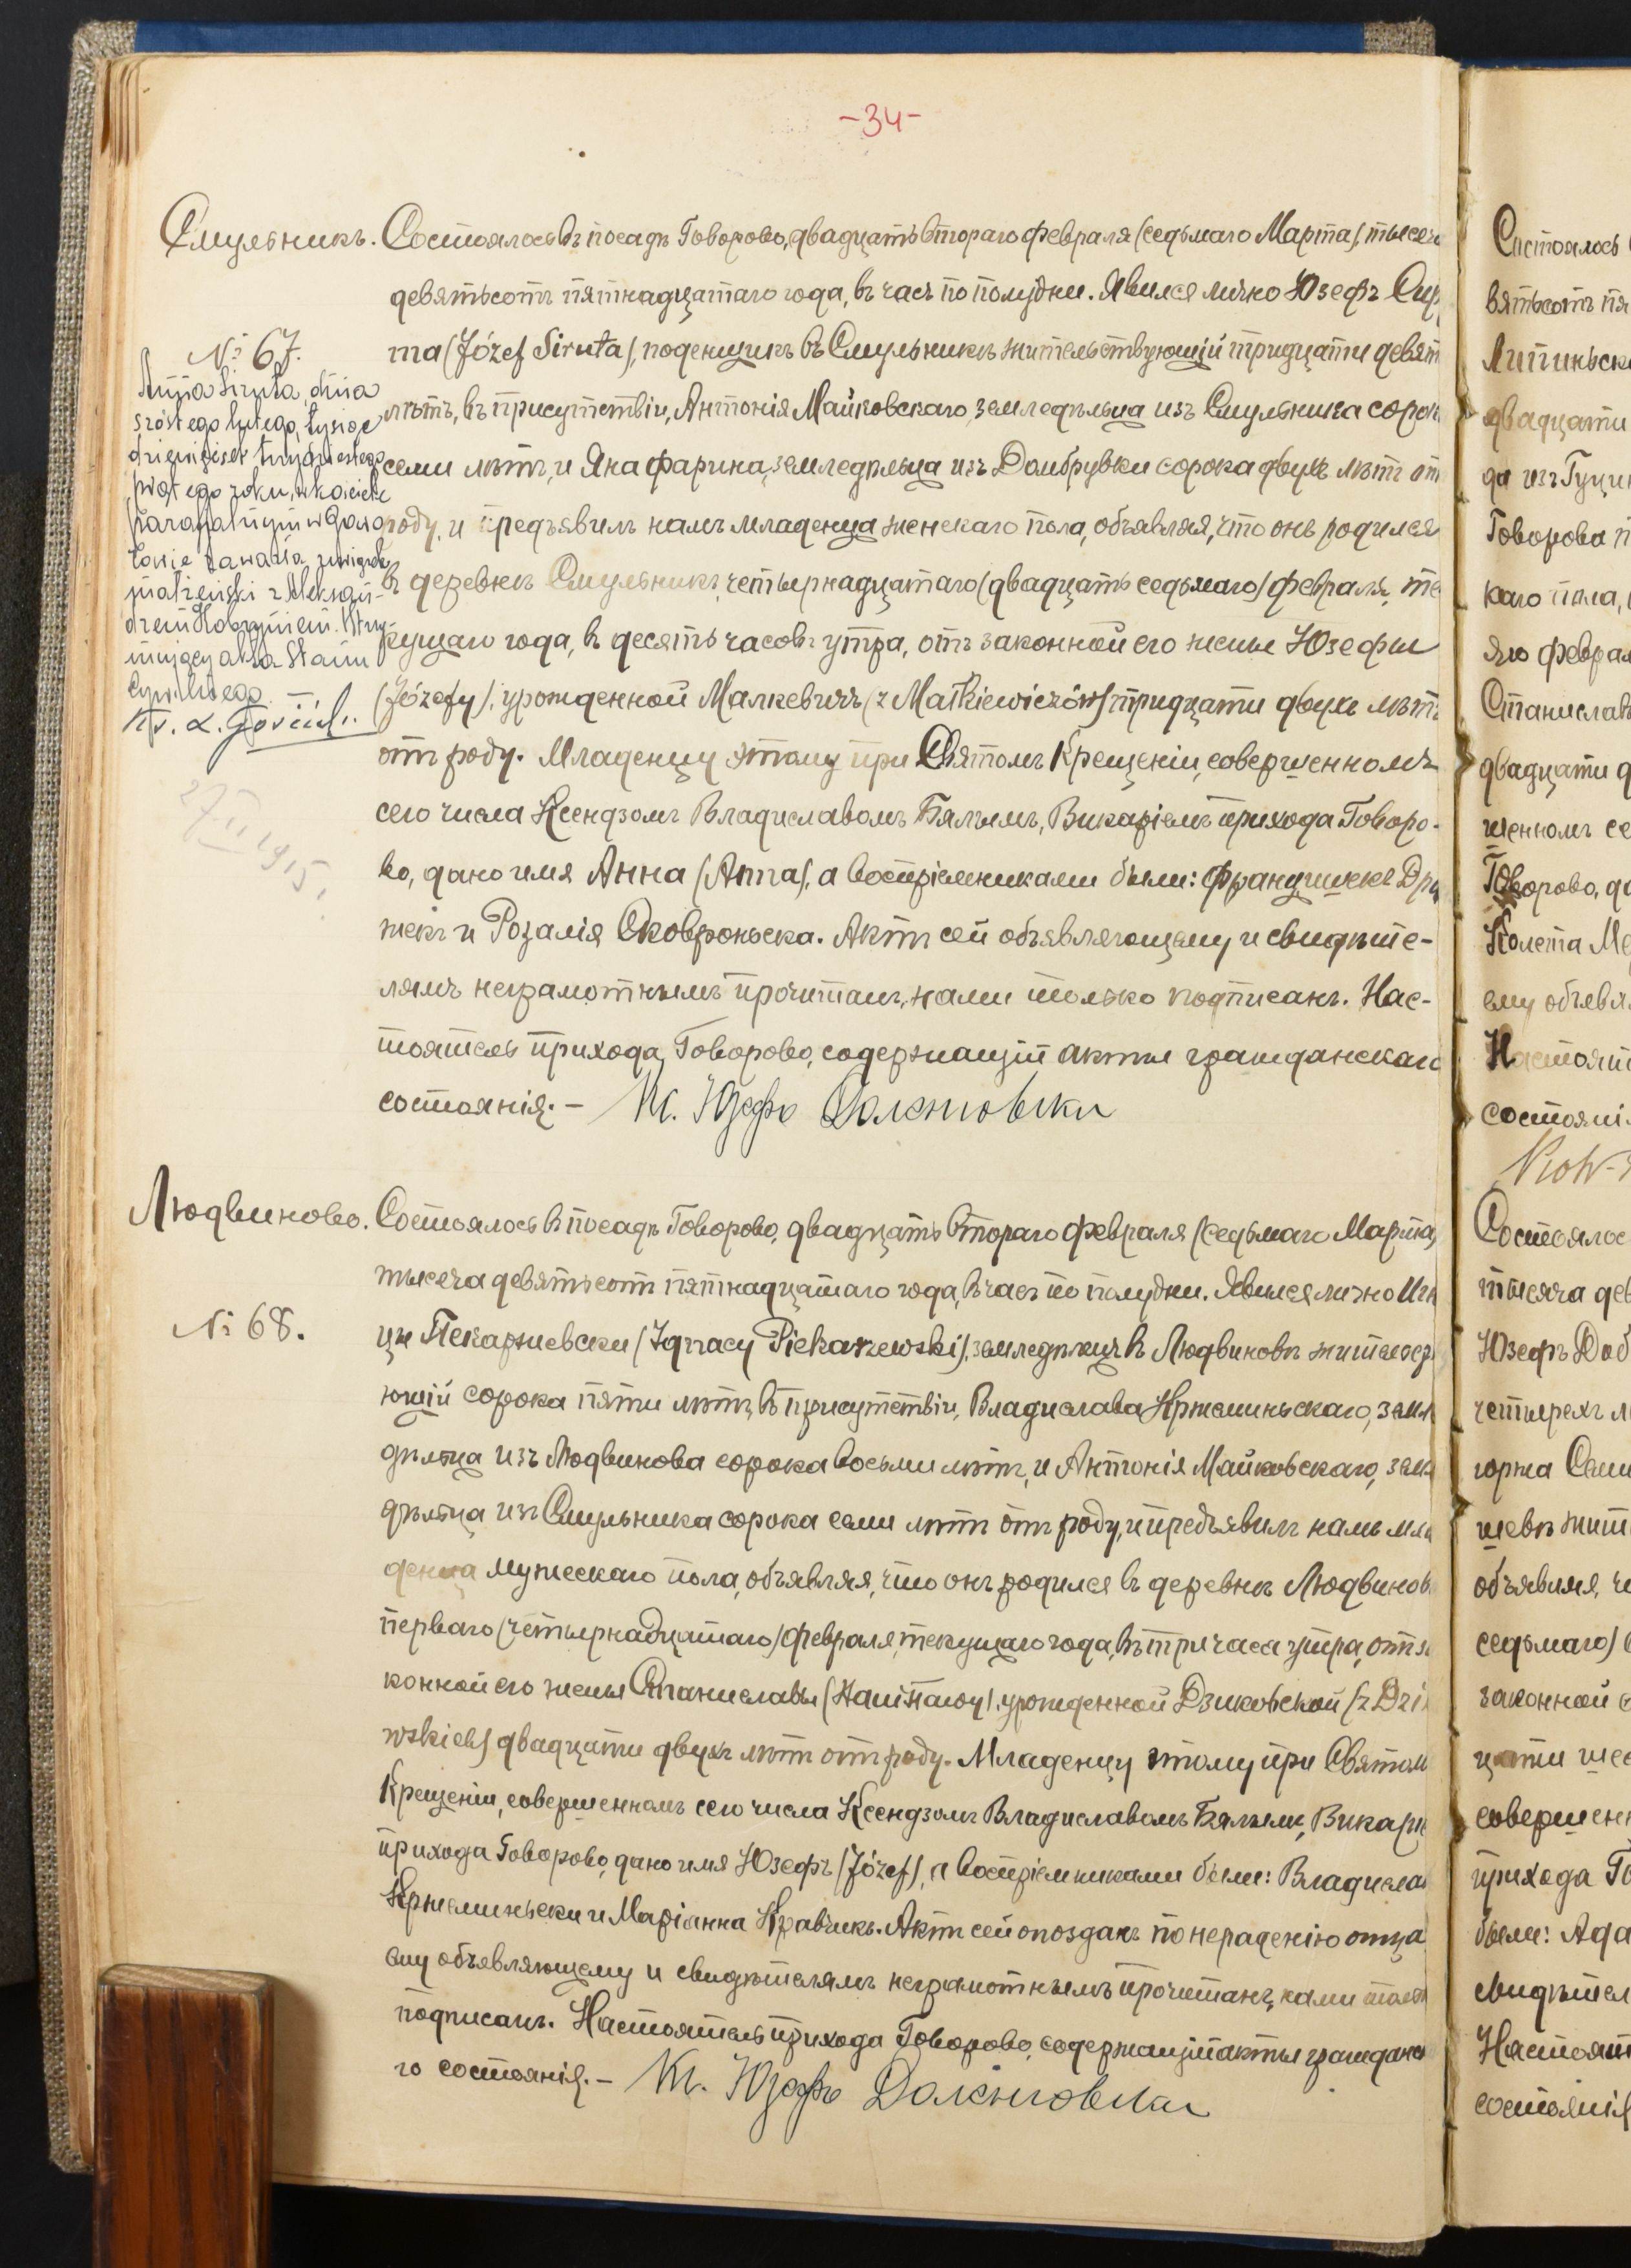 -34-
Смульникъ.
№ 67.
Anna Siruta, dnia
szóstego lutego, tysiąc
dziewięćset trzydziestego
piątego roku, w kościele
parafialnym w Gowo
rowie zawarła związek
małżeński z Aleksan-
drem Kobryniem. Utrzy-
mujący akta Stanu
Cywilnego. —
Ks.
27 II 1915.
Состоялось въ посадѣ Говорово, двадцать втораго февраля (седьмаго Марта), тысяча
девятьсотъ пятнадцатаго года, въ часъ по полудни. Явился лично Юзефъ Сир
та (Józef Siruta), поденщикъ въ Смульникѣ жительствующій тридцати девят
лѣтъ, въ присутствіи, Антонія Майковскаго, земледѣльца изъ Смульника сорок
семи лѣтъ, и Яна Фарина, земледѣльца изъ Домбрувки сорока двухъ лѣтъ от
роду, и предъявилъ намъ младенца женскаго пола, объявляя, что онъ родился
въ деревнѣ Смульникъ, четырнадцатаго (двадцать седьмаго) февраля, те
кущаго года, въ десять часовъ утра, отъ законной его жены Юзефы
(Józefy), урожденной Малкевичъ (z Małkiewiczów) тридцати двухъ лѣтъ
отъ роду. Младенцу этому при Святомъ Крещеніи, совершенномъ
сего числа Ксендзомъ Владиславомъ Бялымъ, Викаріемъ прихода Говоро-
во, дано имя Анна (Anna), а воспріемниками были: Францишекъ Дры
жекъ и Розалія Сковроньска. Актъ сей объявляющему и свидѣте-
лямъ неграмотнымъ прочитанъ, нами только подписанъ. Нас-
тоятель прихода Говорово, содержащій акты гражданскаго
состоянія. — Кс. Юзефъ
Людвиново.
№ 68.
Состоялось въ посадѣ Говорово, двадцать втораго февраля (седьмаго Марта,
тысяча девятьсотъ пятнадцатаго года, въ часъ по полудни. Явился лично Игн
цы Пекаржевски (Ignacy Piekarzewski), земледѣлецъ въ Людвиновѣ жительству
ющій сорока пяти лѣтъ, въ присутствіи, Владислава Кржеминьскаго, земл
дѣльца изъ Людвинова сорока восьми лѣтъ, и Антонія Майковскаго, земл
дѣльца изъ Смульника сорока семи лѣтъ отъ роду, и предъявилъ намъ мла
денца мужескаго пола, объявляя, что онъ родился въ деревнѣ Людвинов
перваго (четырнадцатаго) февраля, текущаго года, въ три часа утра, отъ за
конной его жены Станиславы урожденной Дзиковской (z Dzi
wskich) двадцати двухъ лѣтъ отъ роду. Младенцу этому при Святом
Крещеніи, совершенномъ сего числа Ксендзомъ Владиславомъ Бялымъ, Викарі
прихода Говорово, дано имя Юзефъ (Józef), а воспріемниками были: Владислав
Кржеминьски и Маріанна Кравчикъ. Актъ сей опозданъ по нераденію отца
ему объявляющему и свидѣтелямъ неграмотнымъ прочитанъ, нами тольк
подписанъ. Настоятель прихода Говорово, содержащій акты гражданс
го состоянія. — Кс. Юзефъ
Состоялось
вятьсотъ пя
Липиньск
двадцати
да изъ Гуци
Говорова п
каго пола,
яго февра
Станислав
двадцати д
шенномъ се
Говорово, да
Колета Ме
ему объявл
Настоят
состояні
Состоялос
тысяча дев
Юзефъ Доб
четырехъ л
горжа Сем
шевѣ жит
объявляя, ч
седьмаго)
законной е
цати шес
совершен
прихода Го
были: Ада
свидѣтел
Настоят
состоянія